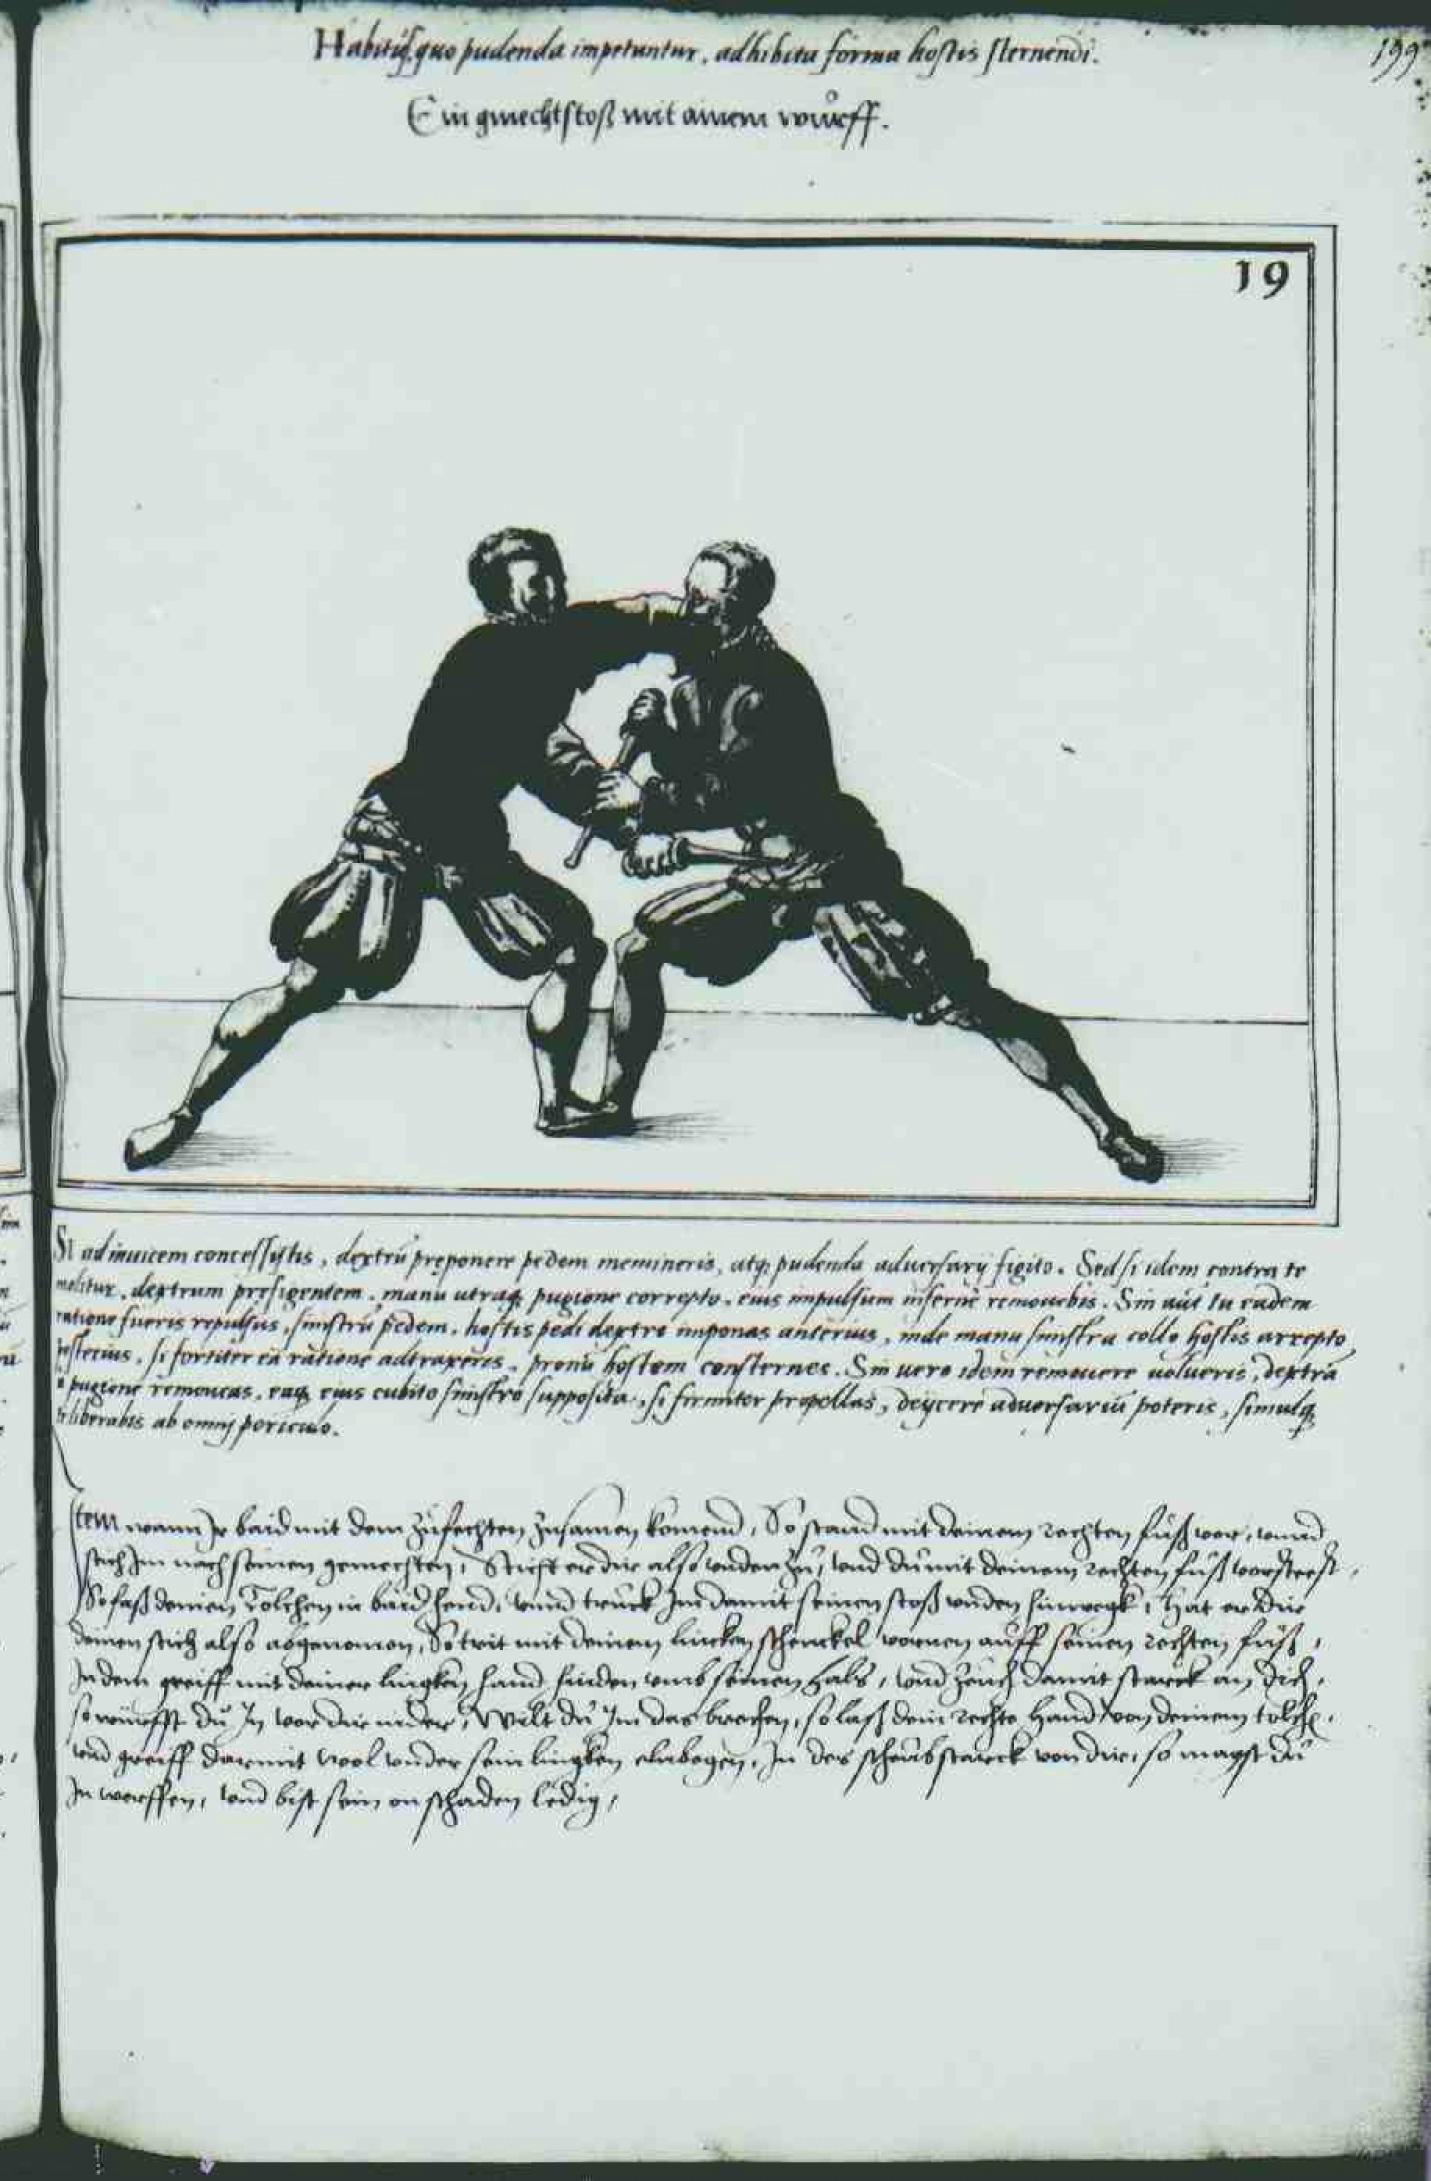 Habitus, quo pudenda impetuntur, adhibita forma hostis sternendi.
199
Ein gmechtstoß mit ainem wurff.
19
Si ad inuicem concessistis, dextrũ preponere pedem memineris, atq, pudenda aduersarij figito. Sed si idem contra te
molitur, dextrum prefigentem, manu utraq, pugione correpto, eius impulsum inferne remouebis. Sin aũt tu eadem
ratione fueris repulsus, sinistrũ pedem, hostis pedi dextro imponas anterius, inde manu sinistra collo hostis arrepto
posterius, si fortiter ea ratione adtraxeris, pronũ hostem consternes. Sin uero idem remouere uolueris, dextrã
a pugione remoueas, eaq, eius cubito sinistro supposita, si firmiter propellas, deijcere aduersariũ poteris, simulq,
te liberabis ab omnj periculo.
Item wann Jr baid mit dem zufechten zusamen komend, So stand mit deinem rechten fuß vor, vnnd
stich Jm nach seinen gemechten, Sticht er dir also vnden zu, vnd du mit deinem rechten fuß vorsteest,
So faß deinen Tolchen in baid hend, vnnd truck Jm damit seinen stoß vnden hinwegk, Hat er dir
deinen stich also abgenomen, So trit mit deinem lincken schenckel vornen auff seinen rechten fuß,
In dem greiff mit deiner lingken hand hinden vmb seinen hals, vnd zeuch damit starck an dich,
so würffst du Jn vor dir nider, Wilt du Jm das brechen, so laß dein rechte hand von deinem tolchen,
vnd greiff darmit wol vnder sein lingken elnbogen, In des scheub starck von dir, so magst du
Jn werffen, vnd bist sein on schaden ledig,